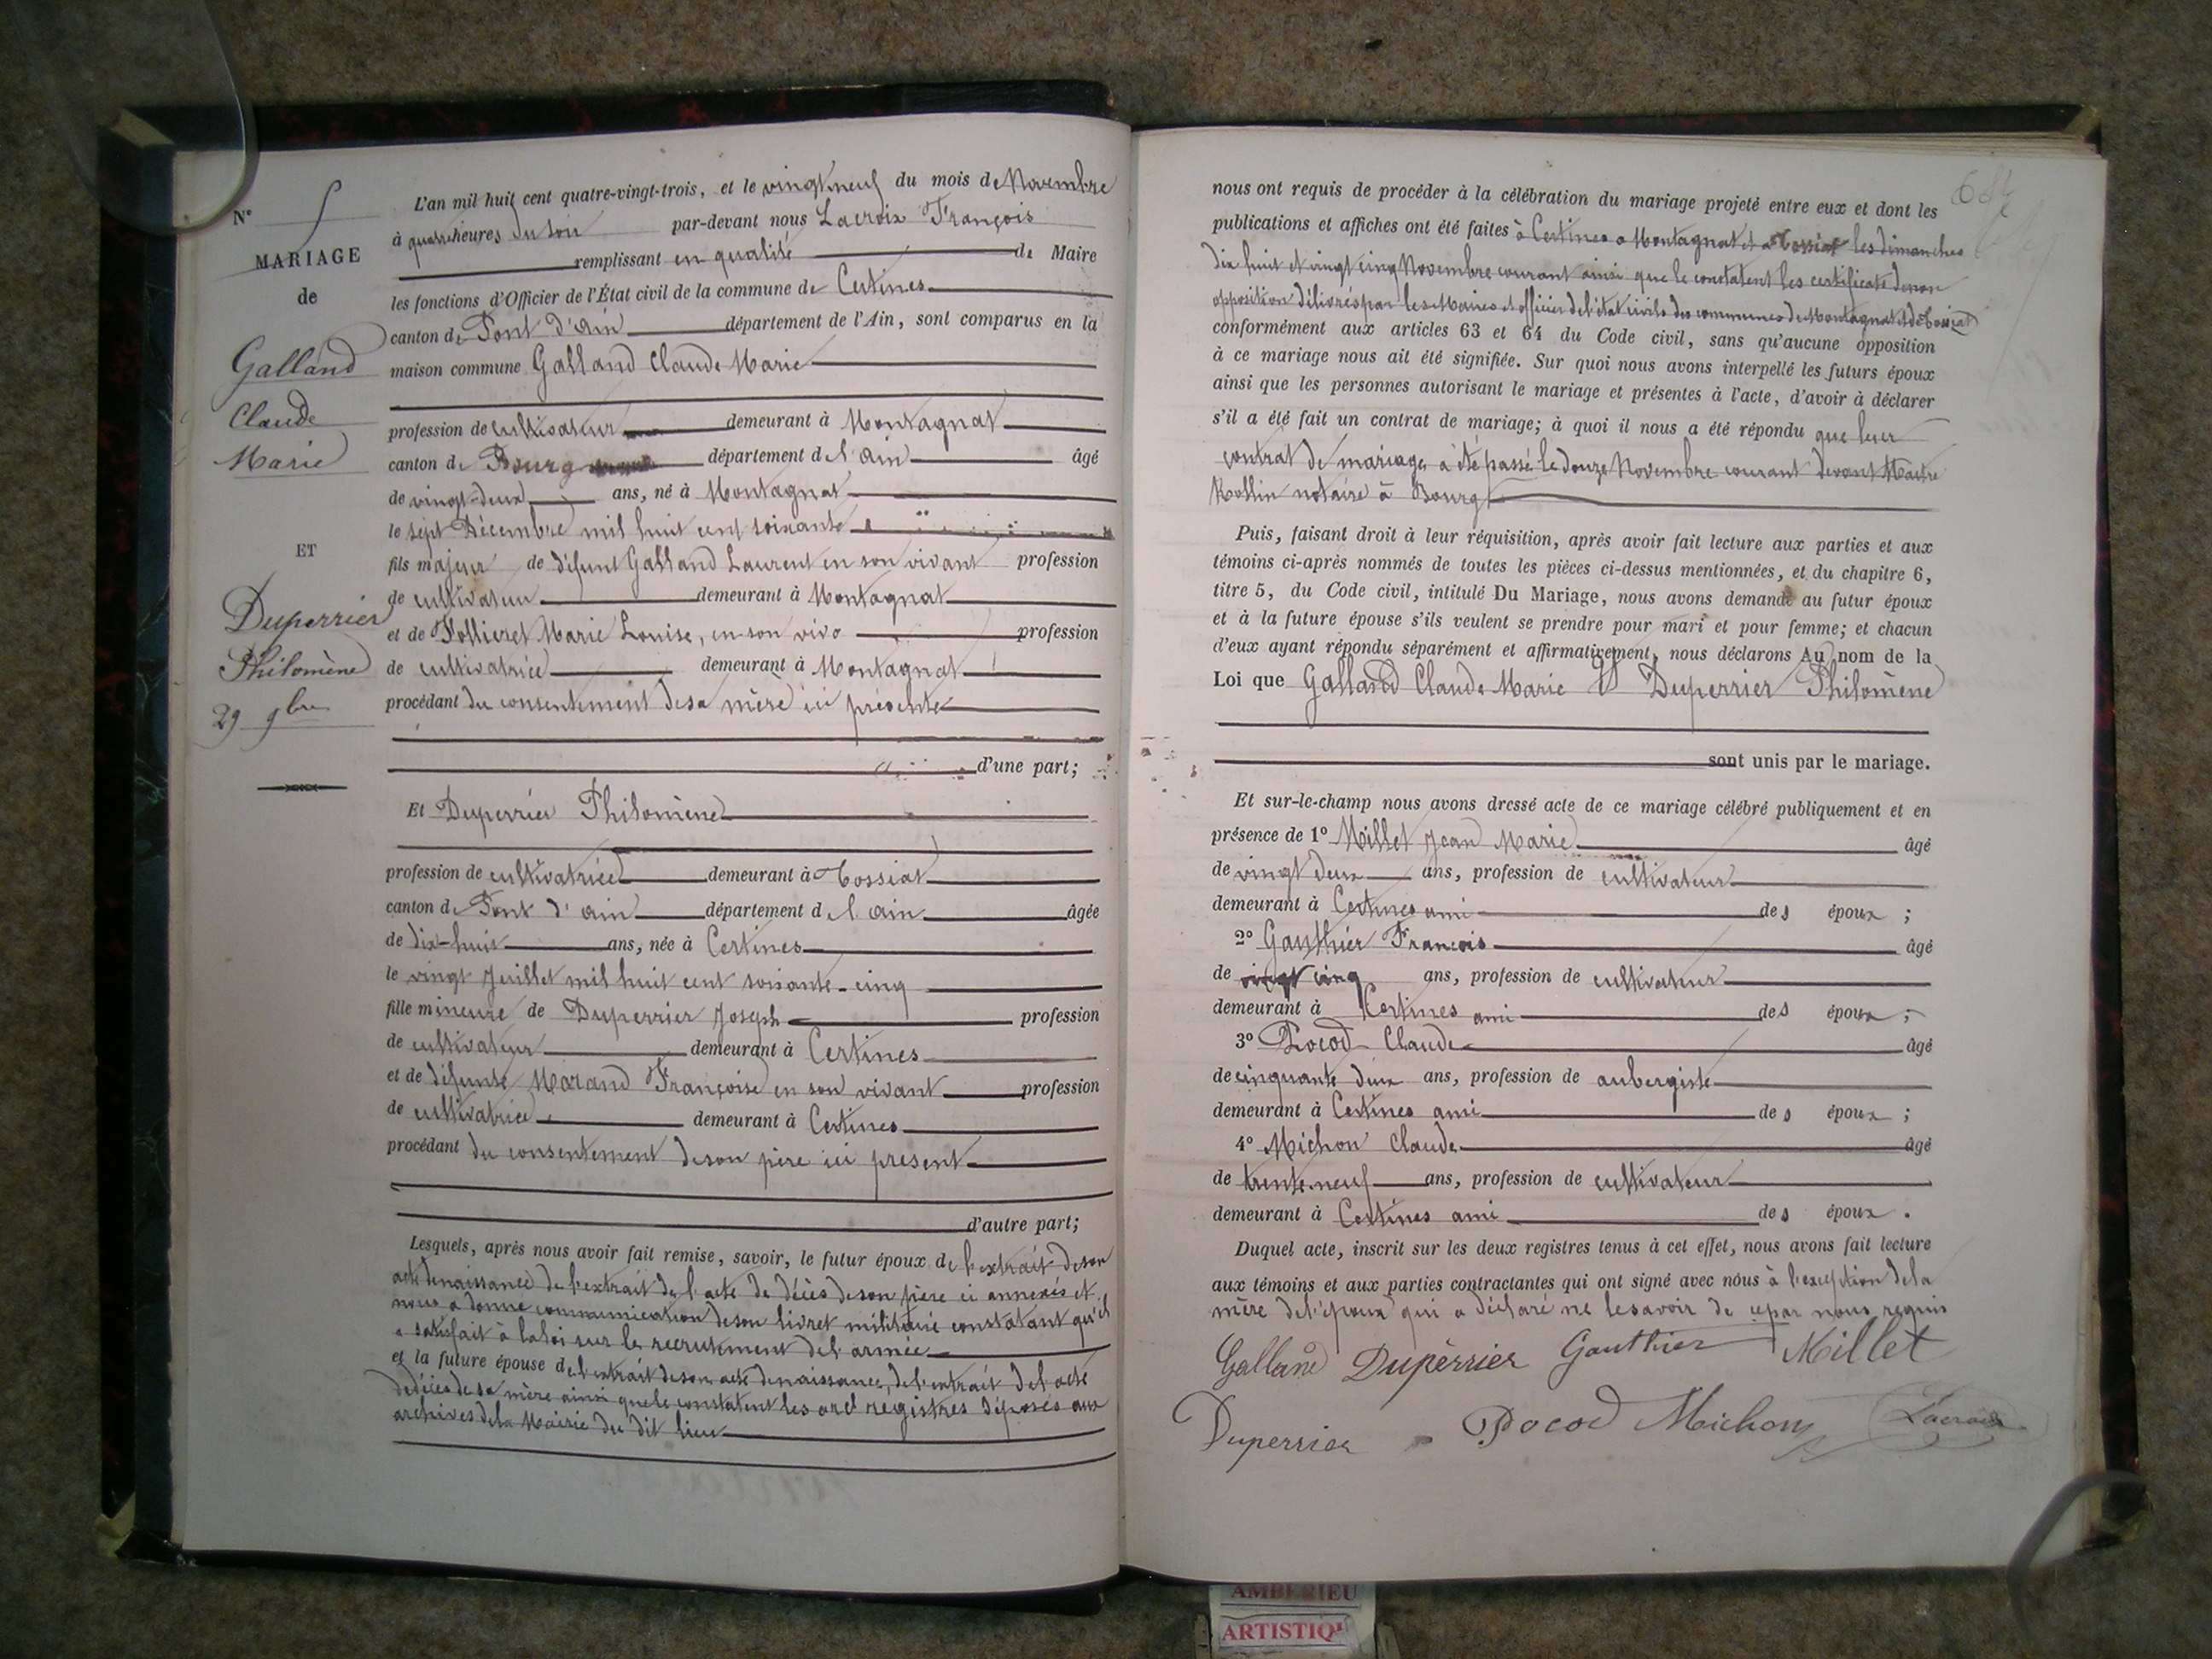 N° 5
MARIAGE
de
Galland
Claude
Marie
ET
Duperrier
Philomène
29 9bre
L'an mil huit cent quatre-vingt-trois, et le vingt neuf du mois de Novembre
à quatre heures du soir par-devant nous Lacroix François
remplissant en qualité de Maire
les fonctions d'Officier de l'État civil de la commune de Certines
canton de Pont d'Ain département de l'Ain, sont comparus en la
maison commune Galland Claude Marie
profession de cultivateur demeurant à Montagnat
canton de Bourg département de l'Ain âgé
de vingt-deux ans, né à Montagnat
le sept Décembre mil huit cent soixante
fils majeur de défunt Galland Laurent en son vivant profession
de cultivateur demeurant à Montagnat
et de Follieret Marie Louise, en son viva profession
de cultivatrice demeurant à Montagnat
procédant du consentement de sa mère ici présente
d'une part;
Et Duperrier Philomène
profession de cultivatrice demeurant à Tossiat
canton de Pont d'Ain département de l'Ain âgée
de dix-huit ans, née à Certines
le vingt Juillet mil huit cent soixante-cinq
fille mineure de Duperrier Joseph profession
de cultivateur demeurant à Certines
et de défunte Marand Françoise en son vivant profession
de cultivatrice demeurant à Certines
procédant du consentement de son père ici présent
d'autre part;
Lesquels, après nous avoir fait remise, savoir, le futur époux de l'extrait de son
acte de naissance de l'extrait de l'acte de décès de son père ci annexés et
nous a donné communication de son livret militaire constatant qu'il
a satisfait à la loi sur le recrutement de l'armée
et la future épouse de l'extrait de son acte de naissance, de l'extrait de l'acte
de décès de sa mère ainsi que le constatent les registres déposés aux
archives de la Mairie du dit lieu
nous ont requis de procéder à la célébration du mariage projeté entre eux et dont les
publications et affiches ont été faites à Certines à Montagnat et à Tossiat les dimanches
dix huit et vingt cinq Novembre courant ainsi que le constatent les certificats de non
opposition délivrés par les Maires et officier de l'état civils des communes de Montagnat et de Tossiat
conformément aux articles 63 et 64 du Code civil, sans qu'aucune opposition
à ce mariage nous ait été signifiée. Sur quoi nous avons interpellé les futurs époux
ainsi que les personnes autorisant le mariage et présentes à l'acte, d'avoir à déclarer
s'il a été fait un contrat de mariage; à quoi il nous a été répondu que leur
contrat de mariage a été passé le douze Novembre courant devant Maitre
Rollin notaire à Bourg
Puis, faisant droit à leur réquisition, après avoir fait lecture aux parties et aux
témoins ci-après nommés de toutes les pièces ci-dessus mentionnées, et du chapitre 6,
titre 5, du Code civil, intitulé Du Mariage, nous avons demandé au futur époux
et à la future épouse s'ils veulent se prendre pour mari et pour femme; et chacun
d'eux ayant répondu séparément et affirmativement, nous déclarons Au nom de la
Loi que Galland Claude Marie Et Duperrier Philomène
sont unis par le mariage.
Et sur-le-champ nous avons dressé acte de ce mariage célébré publiquement et en
présence de 1° Millet Jean Marie âgé
de vingt deux ans, profession de cultivateur
demeurant à Certines ami des époux ;
2° Gauthier François âgé
de vingt cinq ans, profession de cultivateur
demeurant à Certines ami des époux ;
3° Pocod Claude âgé
de cinquante deux ans, profession de aubergiste
demeurant à Certines ami des époux ;
4° Michon Claude âgé
de trente neuf ans, profession de cultivateur
demeurant à Certines ami des époux .
Duquel acte, inscrit sur les deux registres tenus à cet effet, nous avons fait lecture
aux témoins et aux parties contractantes qui ont signé avec nous à l'exception de la
mère de l'époux qui a déclaré ne le savoir de ce par nous requis
Galland Dupèrrier Gauthier Millet
Duperrier Pocod Michon Lacroix
AMBERIEU
ARTISTIQ